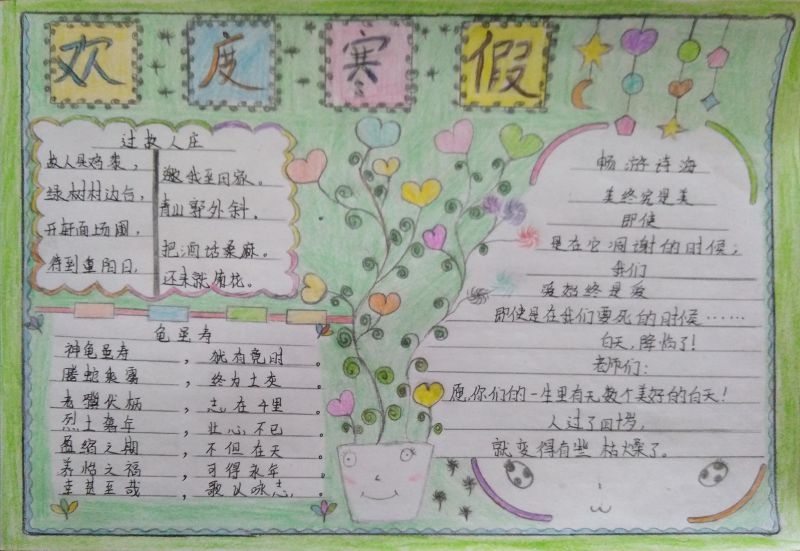 欢度寒假
过故人庄
故人具鸡黍, 邀我至田家。
绿树村边合, 青山郭外斜。
开轩面场圃, 把酒话桑麻。
待到重阳日, 还来就菊花。
龟虽寿
神龟虽寀, 犹有竟时。
腾蛇乘雾, 终为土灰
老骥伏枥, 志在千里
烈士暮年, 壮心不已。
盈缩之期, 不但在天
养怡之福, 可得永年
幸甚至哉, 歌以咏志。
畅游诗海
美终究是美
即使
是在它凋谢的时候;
我们
爱始终是爱
即使是在我们要死的时候……
白天,降临了!
老师们:
愿你们的一生里有无数个美好的白天!
人过了四十岁,
就变得有些枯燥了。